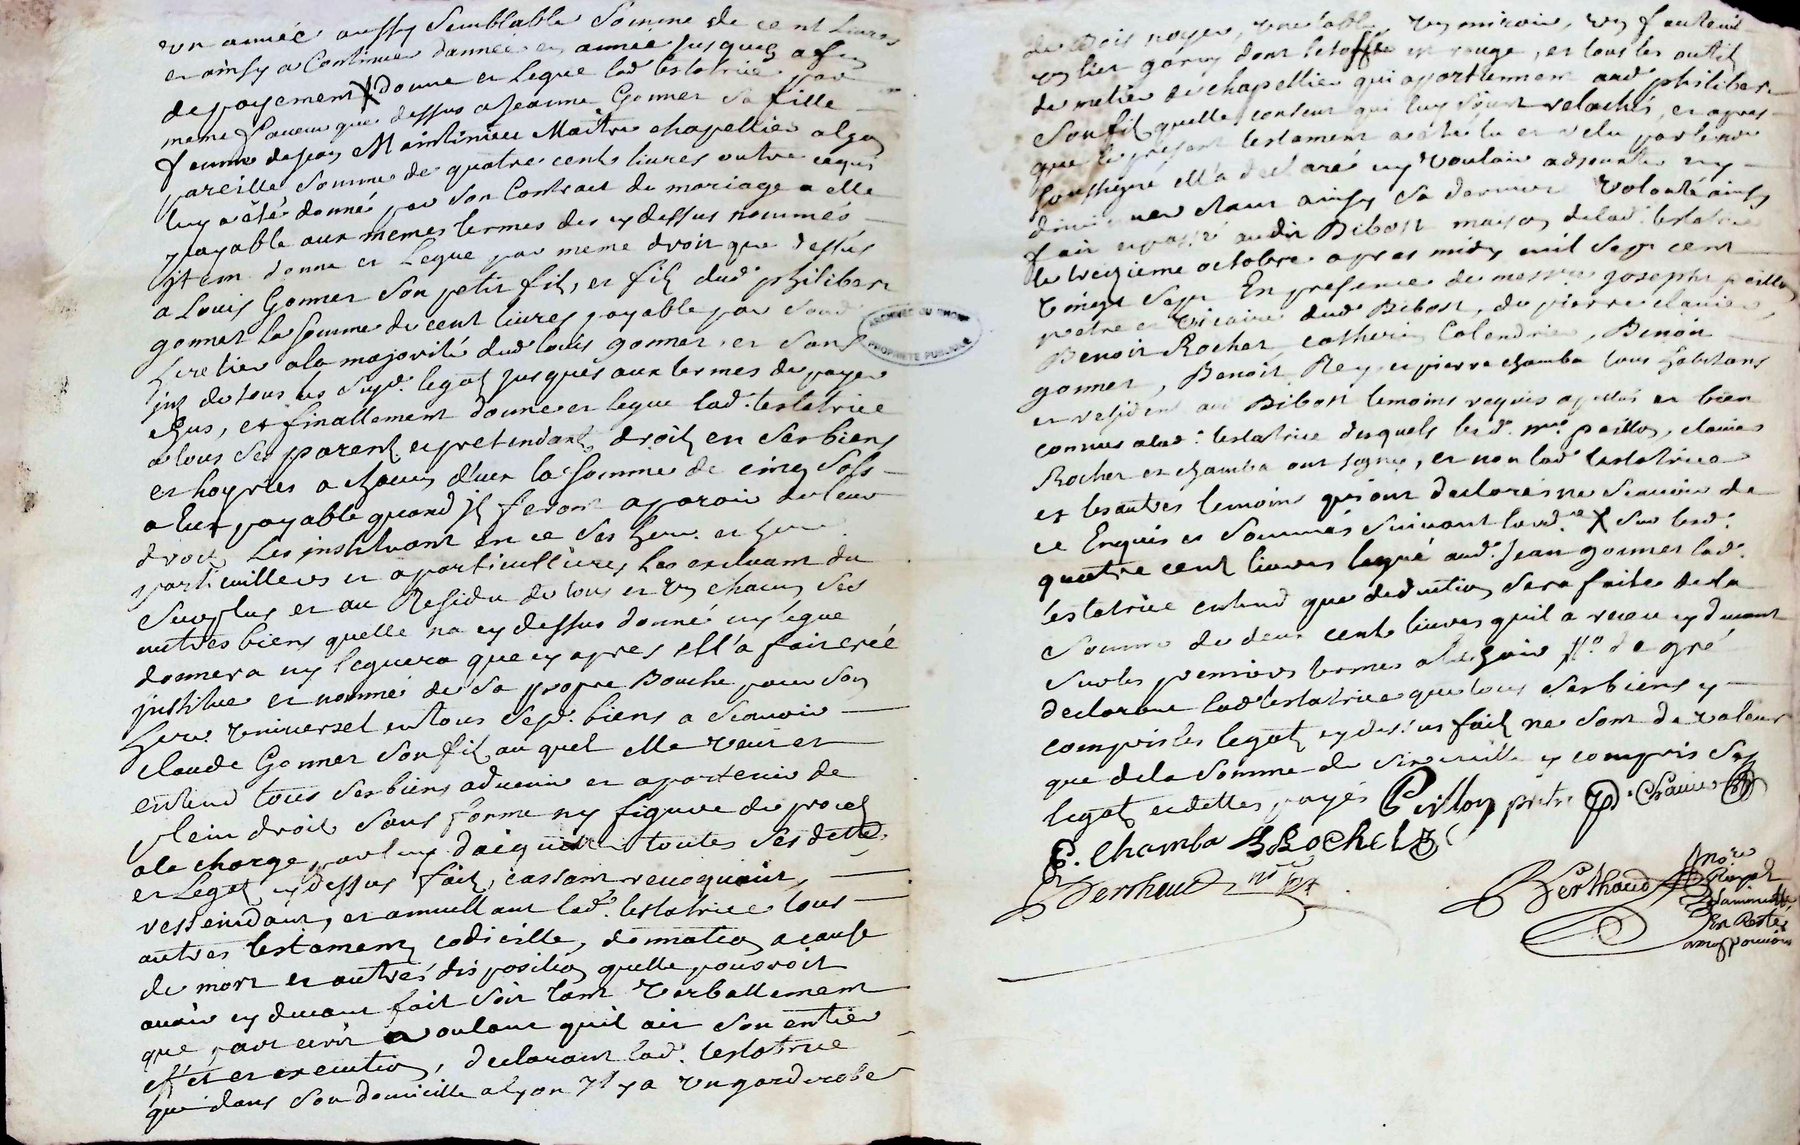 un année aussy Semblable Somme de cent Livres
et ainsy a Continuer dannée en année jusques a fin
de payement X donne et Legue lad. testatrice par
meme faveur que dessus a Jeanne Gonnet Sa fille
femme de Jean Maitre chapellier a lyon
pareille Somme de quatre cent livres outre ce qui
luy a êté donné par Son Contract de mariage a elle
payable aux memes termes des cy dessus nommés
jtem donne et Legue par meme droit que dessus
a Louis Gonnet Son petit fils, et fils dud. philibert
gonnet la Somme de cent livres payable par Sond.
heretier a la majorité dud. louis gonnet, et Sans
de tous les Susd. legats jusques aux termes de payer
echus, et finallement donne et legue lad. testatrice
a tous Ses parents et pretendants droits en Ses biens
et hoyries a chacun d'eux la Somme de cinq Sols
a eux payable quand jls feront aparoir de leur
droit, Les instituant en ce Ses heri. et
particulliers et aparticullieres, Les excluant du
Surplus et au Residu de tous et un chacun Ses
autres biens quelle na cy dessus donné ny legué
donnera ny leguera que cy apres Ell'a fait creé
jnstitué et nommé de Sa propre Bouche pour Son
heri. universel en tous Sesd. biens a Scavoir
claude Gonnet Son fils au quel elle veut et
entend tous Ses biens advenir et apartenir de
plein droit Sans forme ny figure de procés
a la charge par luy d'acquitter toutes Ses dettes
et Legats cy dessus faits, cassant revoquant,
resseindant, et annullant lad. testatrice tous
autres testaments codicille, donnation a cause
de mort et autres disposition quelle pouvroit
avoir cy devant fait Soit tant Verballement
que par ecrit voulant quil ait Son entier
effet et execution, declarant lad. testatrice
que dans Son domicille a lyon jl y a un garderobe
de Bois noyer, une table, un miroir, un fauteuil
un lict garny dont letoffe est rouge, et tous les outils
du metier de chapellier qui apartiennent aud. philibert
Son fils quelle consent qui luy Soient relachés, et apres
que le present testament a eté lu et relu par le no.re
Soussigné Ell'a declaré ny vouloir adjouter ny
diminuer etant ainsy Sa derniere Volonté ainsy
fait et passé aud. Bibost maison de lad. testatrice
le treizieme octobre apres midy mil Sept cent
vingt Sept En presence de mess.re Joseph peillon
pretre et Vicaire dud. Bibost, de pierre clavier,
Benoit Rocher, catherin Colendrier, Benoit
gonnet, Benoit Rey, et pierre chamba tous habitans
et residents aud. Bibost temoins requis apellés et bien
connus a lad. testatrice desquels les d. m.re peillon, clavier
Rocher et chamba ont signé, et non lad. testatrice
et les autres temoins qui ont declarés ne Scavoir de
ce Enquis et Sommés Suivant lord.ce X Sur lesd.
quatre cent livres legué aud. Jean gonnet lad.
testatrice entend que deduction Sera faite de la
Somme de deux cent livres quil a receu cy devant
Sur les premiers termes de gré
declarant lad. testatrice que tous Ses biens y
compris les legats cy dessus faits ne Sont de valeur
que de la Somme de Six mille y compris Ses
legats et dettes, payés Peillon pretre P. Clavier
P. Chamba B Rocher
Berthaud
Berthaud
No.re
Royal
ARCHIVES DU RHONE
PROPRIÉTÉ PUBLIQUE